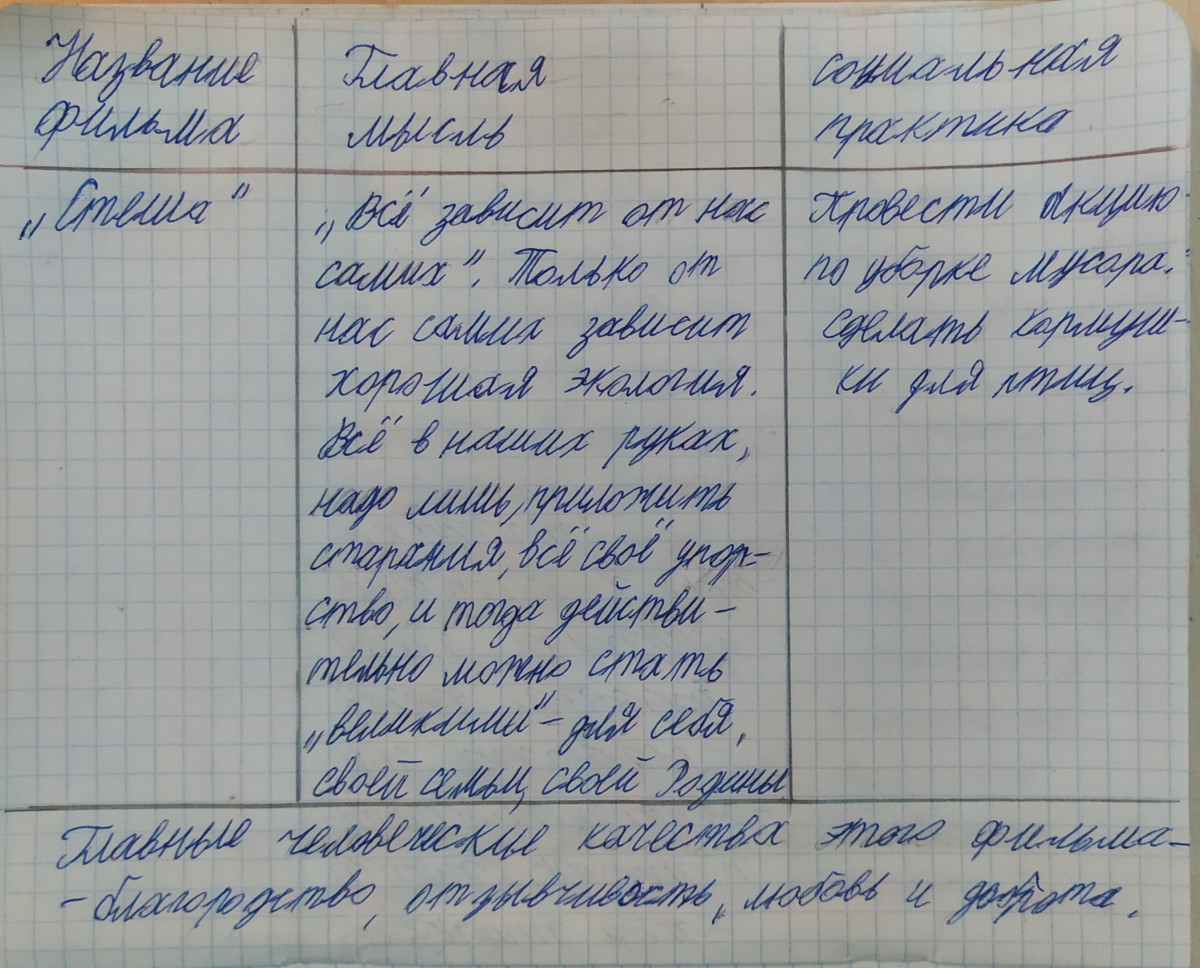 Название
фильма
Главная
мысль
социальная
практика
„Стеша"
„Всё зависит от нас
самих". Только от
нас самих зависит
хорошая экология.
Всё в наших руках,
надо лишь, приложить
старания, всё своё упор-
ство, и тогда действи-
тельно можно стать
„великими" - для себя,
своей семьи, своей Родины
Провести акцию
по уборке мусора.
сделать кормуш-
ки для птиц.
Главные человеческие качества этого фильма-
- благородство, отзывчивость, любовь и доброта.